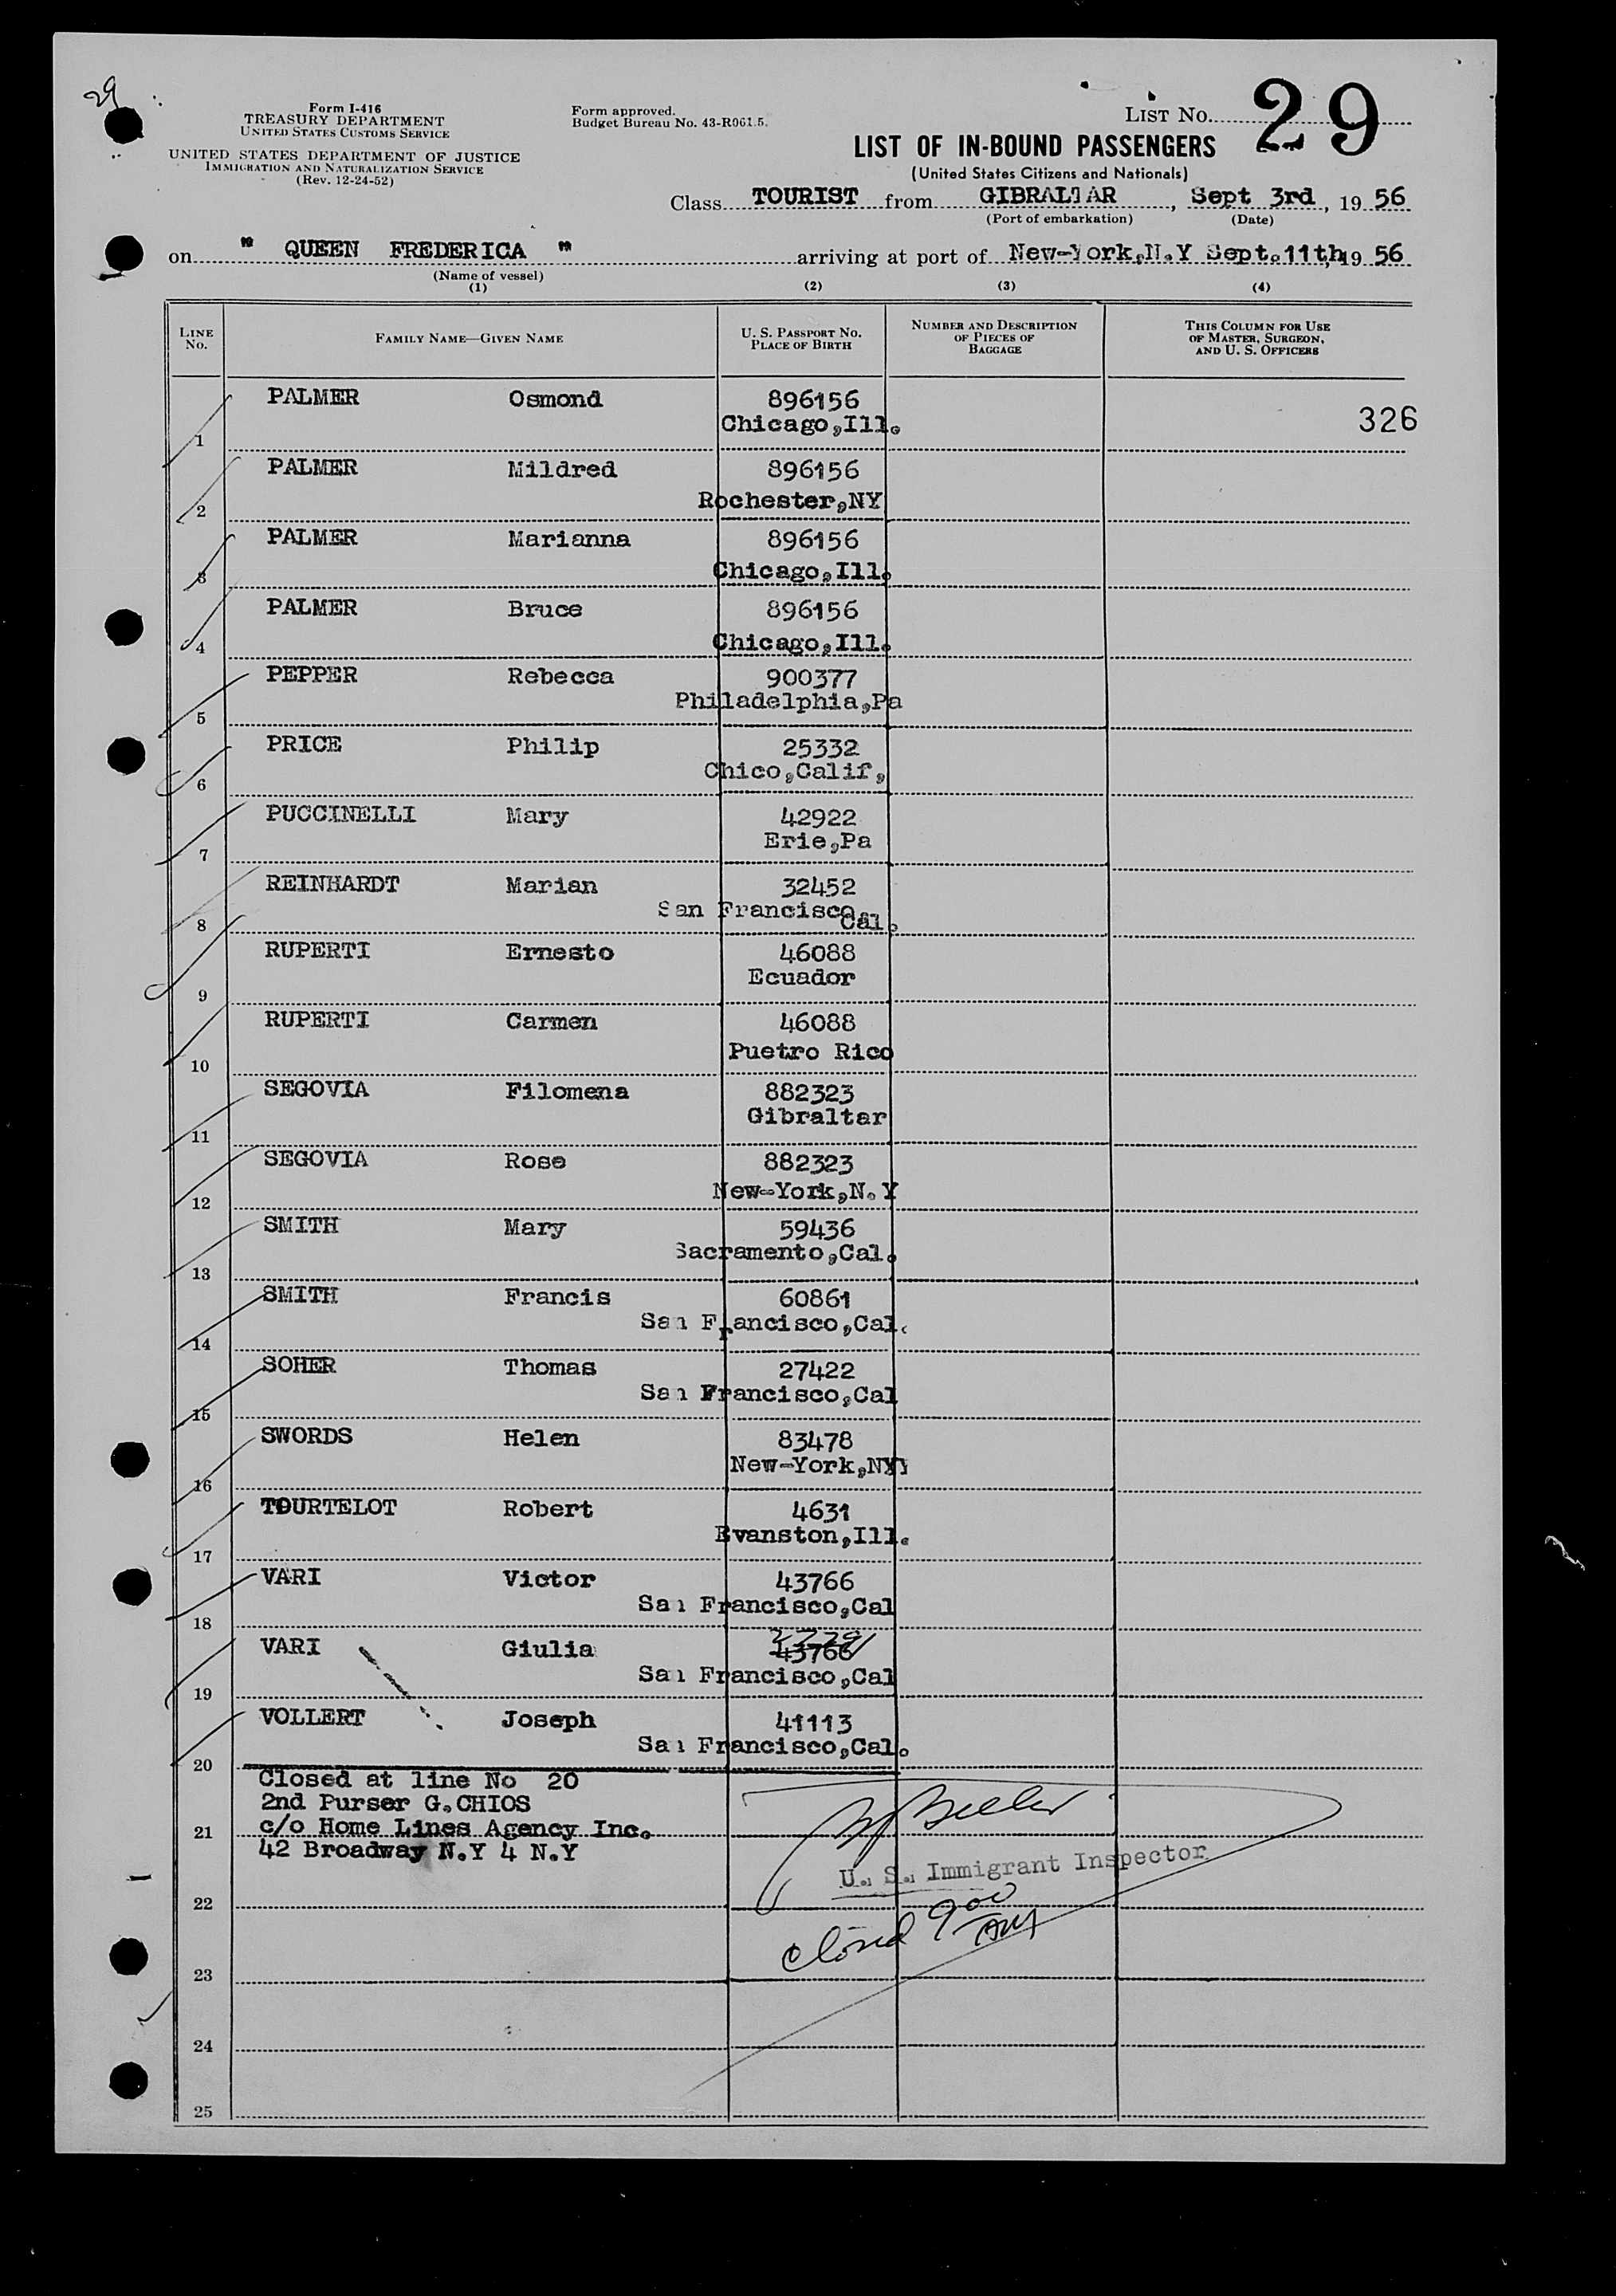 29
Form I-416
TREASURY DEPARTMENT
UNITED STATES CUSTOMS SERVICE
UNITED STATES DEPARTMENT OF JUSTICE
IMMIGRATION AND NATURALIZATION SERVICE
(Rev. 12-24-52)
Form approved.
Budget Bureau No. 43-R061.5.
LIST NO. 29
LIST OF IN-BOUND PASSENGERS
(United States Citizens and Nationals)
Class TOURIST from GIBRALTAR, Sept 3rd, 19 56
(Port of embarkation) (Date)
on " QUEEN FREDERICA " arriving at port of New-York,N.Y Sept.11th,19 56
(Name of vessel)
(1) (2) (3) (4)
LINE NO. FAMILY NAME—GIVEN NAME U. S. PASSPORT NO. PLACE OF BIRTH NUMBER AND DESCRIPTION OF PIECES OF BAGGAGE THIS COLUMN FOR USE OF MASTER, SURGEON, AND U. S. OFFICERS
PALMER Osmond 896156
1 Chicago,Ill. 326
PALMER Mildred 896156
2 Rochester,NY
PALMER Marianna 896156
3 Chicago,Ill.
PALMER Bruce 896156
4 Chicago,Ill.
PEPPER Rebecca 900377
5 Philadelphia,Pa
PRICE Philip 25332
6 Chico,Calif,
PUCCINELLI Mary 42922
7 Erie,Pa
REINHARDT Marian 32452
8 San Francisco,Cal.
RUPERTI Ernesto 46088
9 Ecuador
RUPERTI Carmen 46088
10 Puetro Rico
SEGOVIA Filomena 882323
11 Gibraltar
SEGOVIA Rose 882323
12 New-York,N.Y
SMITH Mary 59436
13 Sacramento,Cal.
SMITH Francis 60861
14 San Francisco,Cal.
SOHER Thomas 27422
15 San Francisco,Cal
SWORDS Helen 83478
16 New-York,NY
TOURTELOT Robert 4631
17 Evanston,Ill.
VARI Victor 43766
18 San Francisco,Cal
VARI Giulia 43766
19 San Francisco,Cal
VOLLERT Joseph 41113
20 San Francisco,Cal.
Closed at line No 20
2nd Purser G.CHIOS
21 c/o Home Lines Agency Inc.
42 Broadway N.Y 4 N.Y
U. S. Immigrant Inspector
22
closed 900 AM
23
24
25